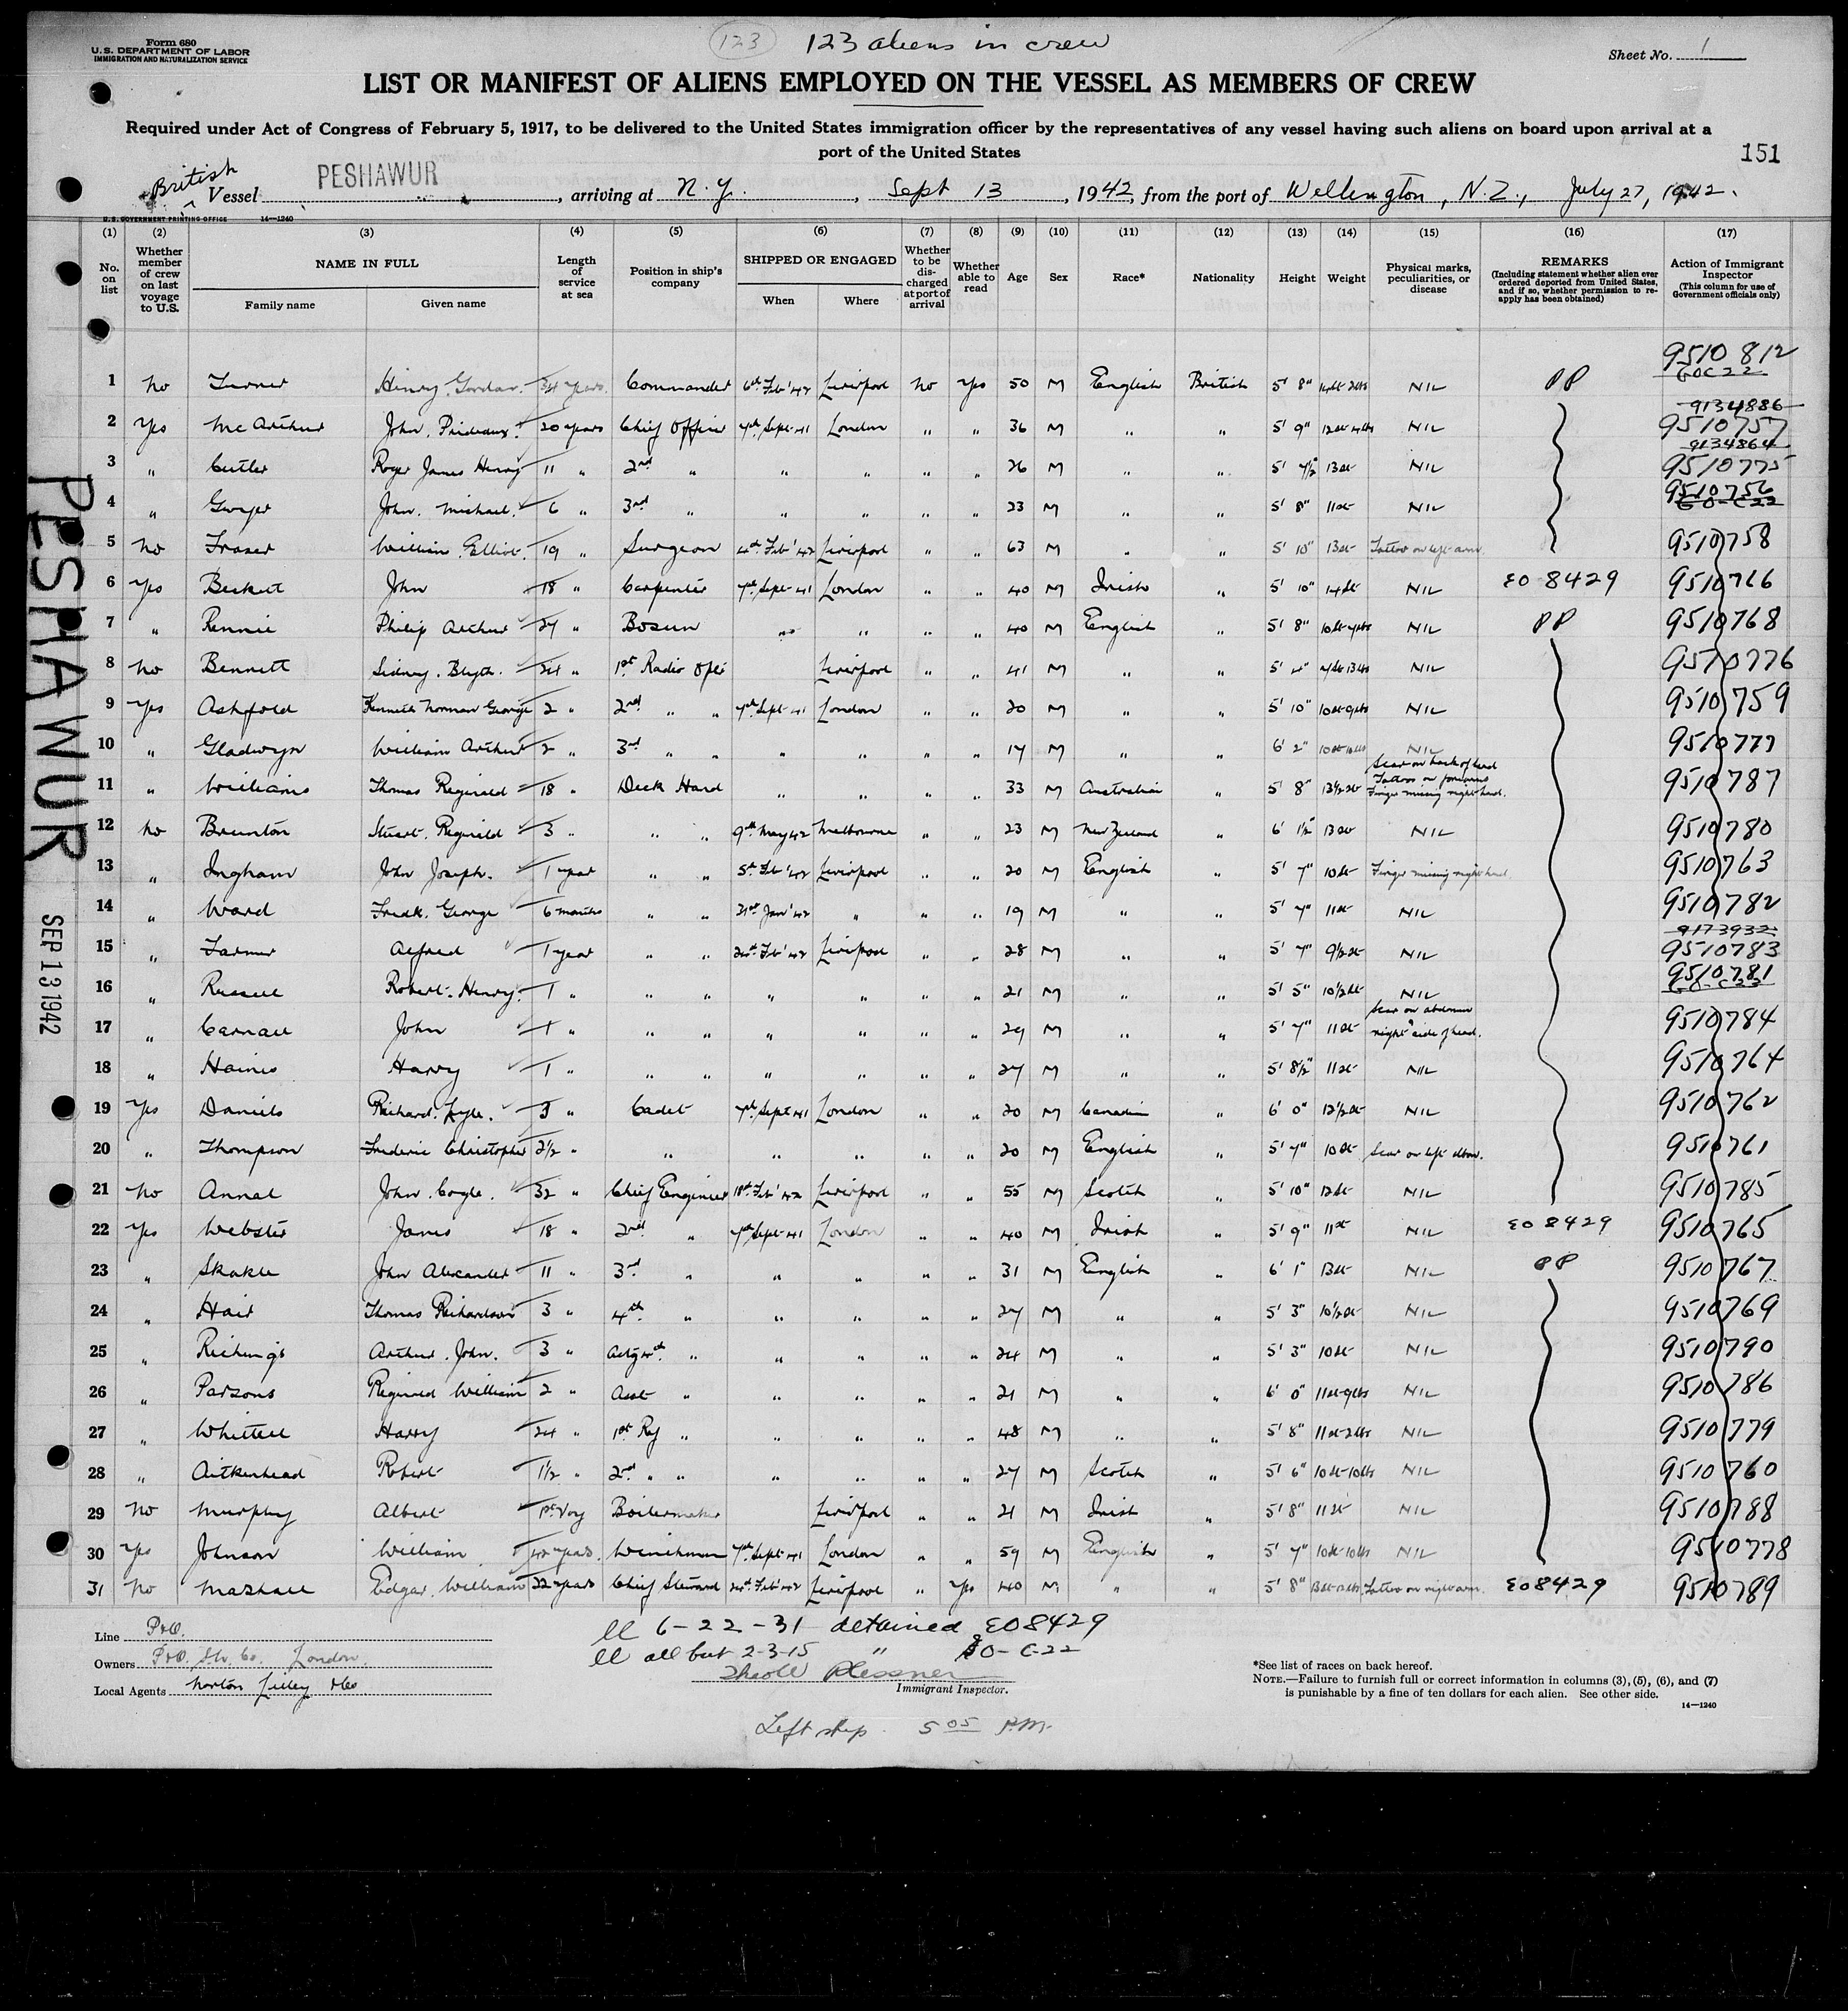 Form 680
U.S. DEPARTMENT OF LABOR
IMMIGRATION AND NATURALIZATION SERVICE
123 123 aliens in crew
Sheet No. 1
LIST OR MANIFEST OF ALIENS EMPLOYED ON THE VESSEL AS MEMBERS OF CREW
Required under Act of Congress of February 5, 1917, to be delivered to the United States immigration officer by the representatives of any vessel having such aliens on board upon arrival at a
port of the United States
151
British Vessel PESHAWUR, arriving at N.Y., Sept 13, 1942, from the port of Wellington, N.Z., July 27, 1942.
U.S. GOVERNMENT PRINTING OFFICE 14—1240
(1) (2) (3) (4) (5) (6) (7) (8) (9) (10) (11) (12) (13) (14) (15) (16) (17)
No. on list
Whether member of crew on last voyage to U.S.
NAME IN FULL
Family name Given name
Length of service at sea
Position in ship's company
SHIPPED OR ENGAGED
When Where
Whether to be discharged at port of arrival
Whether able to read
Age Sex Race* Nationality Height Weight
Physical marks, peculiarities, or disease
REMARKS
(Including statement whether alien ever ordered deported from United States, and if so, whether permission to reapply has been obtained)
Action of Immigrant Inspector
(This column for use of Government officials only)
9510812
1 No Turner Henry Gordon 34 years Commander 6th Feb '42 Liverpool No Yes 50 M English British 5' 8" NIL PP GOC22
9134886
2 Yes McArthur John Prideaux 20 years Chief Officer 7th Sept 41 London " " 36 M " " 5' 9" 12st 4lbs NIL 9510757
9134864
3 " Cutler Roger James Henry 11 " 2nd " " " " " 26 M " " 5' 7½" 13st NIL 9510775
4 " Gwyer John Michael 6 " 3rd " " " " " 23 M " " 5' 8" 11st NIL 9510756 GO-C22
5 No Fraser William Elliot 19 " Surgeon 4th Feb '42 Liverpool " " 63 M " " 5' 10" 13st Tattoo on left arm. 9510758
6 Yes Beckett John 18 " Carpenter 7th Sept 41 London " " 40 M Irish " 5' 10" 14st NIL EO 8429 9510766
7 " Rennie Philip Arthur 27 " Bosun " " " " 40 M English " 5' 8" 10st 7lbs NIL PP 9510768
8 No Bennett Sidney Blyth 24 " 1st Radio Optr Liverpool " " 41 M " " 5' 4" 9st 13lbs NIL 9510776
9 Yes Ashfold Kenneth Norman George 2 " 2nd " " 7th Sept 41 London " " 20 M " " 5' 10" 10st 9lbs NIL 9510759
10 " Gladwyn William Arthur 2 " 3rd " " " " " " 17 M " " 6' 2" NIL 9510777
11 " Williams Thomas Reginald 18 " Deck Hand " " " " 33 M Australian " 5' 8" 13½st Scar on back of hand Tattoo on forearms Finger missing right hand. 9510787
12 No Brunton Stuart Reginald 3 " " " 9th May 42 Melbourne " " 23 M New Zealand " 6' 1½" 13st NIL 9510780
13 " Ingham John Joseph. 1 year " " 5th Feb '42 Liverpool " " 20 M English " 5' 7" 10st Finger missing right hand 9510763
14 " Ward Fredk. George 6 months " " 21st Jan '42 " " " 19 M " " 5' 7" 11st NIL 9510782
9173932
15 " Farmer Alfred 1 year " " 24th Feb '42 Liverpool " " 28 M " " 5' 7" 9½st NIL 9510783
16 " Russell Robert Henry. 1 " " " " " " " 21 M " " 5' 5" 10½st NIL 9510781
17 " Carnall John 1 " " " " " " " 29 M " " 5' 7" 11st Scar on abdomen right side of head. 9510784
18 " Haines Harry 1 " " " " " " " 27 M " " 5' 8½" 11st NIL 9510764
19 Yes Daniels Richard Lyle. 3 " Cadet 7th Sept 41 London " " 20 M Canadian " 6' 0" 12½st NIL 9510762
20 " Thompson Frederic Christopher 2½ " " " " " " 20 M English " 5' 7" 10st Scar on left elbow. 9510761
21 No Annal John Cogle. 32 " Chief Engineer 18th Feb '42 Liverpool " " 55 M Scotch " 5' 10" 12st NIL 9510785
22 Yes Webster James 18 " 2nd " 7th Sept 41 London " " 40 M Irish " 5' 9" 11st NIL EO 8429 9510765
23 " Skakle John Alexander 11 " 3rd " " " " " 31 M English " 6' 1" 13st NIL PP 9510767
24 " Hair Thomas Richardson 3 " 4th " " " " " 27 M " " 5' 3" 10½st NIL 9510769
25 " Richings Arthur John. 3 " Actg 4th " " " " " 24 M " " 5' 3" 10st NIL 9510790
26 " Parsons Reginald William 2 " Asst " " " " " 21 M " " 6' 0" 11st 9lbs NIL 9510786
27 " Whittell Harry 24 " 1st Rfg " " " " " 48 M " " 5' 8" 11st 2lbs NIL 9510779
28 " Aitkenhead Robert 1½ " 2nd " " " " " " 27 M Scotch " 5' 6" 10st 10lbs NIL 9510760
29 No Murphy Albert 1st Voy Boilermaker Liverpool " " 21 M Irish " 5' 8" 11st NIL 9510788
30 Yes Johnson William 42 years. Winchman 7th Sept 41 London " " 59 M English " 5' 7" 10st 10lbs NIL 9510778
31 No Marshall Edgar William 22 years Chief Steward 24th Feb '42 Liverpool " Yes 40 M " " 5' 8" Tattoo on right arm. EO8429 9510789
PESHAWUR
SEP 13 1942
Line P&O.
Owners P&O. Stn. Co. London.
Local Agents Norton Lilley & Co
ll 6-22-31 detained EO8429
ll all but 2-3-15 " GO-C-22
Plessner
Immigrant Inspector.
*See list of races on back hereof.
NOTE.—Failure to furnish full or correct information in columns (3), (5), (6), and (7)
is punishable by a fine of ten dollars for each alien. See other side.
14—1240
Left ship 5 05 P.M.